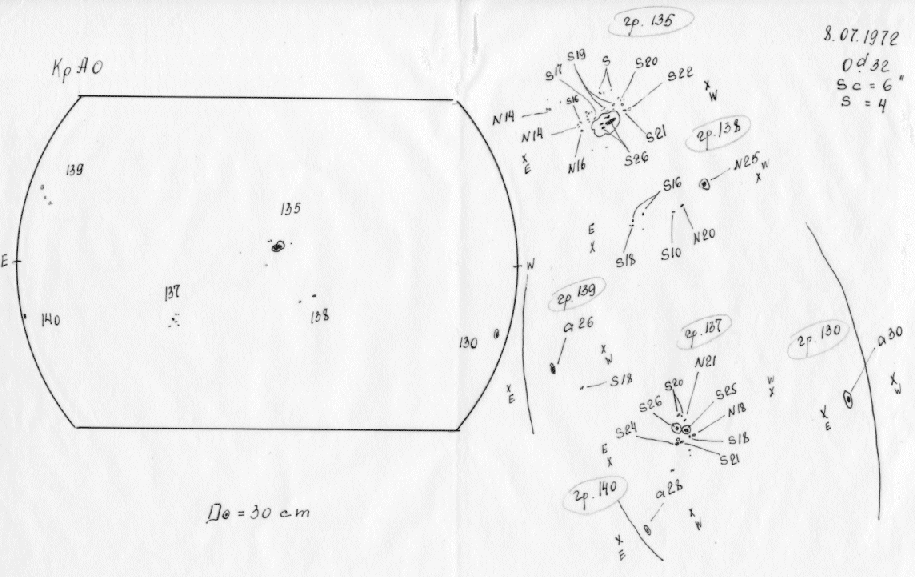 КрАО
139
135
E
W
137
140
138
130
D⊙ = 30 cm
8.07.1972
0d32
Sc = 6"
S = 4
гр. 135
S19
S
S17
S20
S16
S22
N14
N14
N16
S26
S21
X
W
X
E
гр. 138
N25
X
W
S16
E
X
S18
S10
N20
гр. 139
a26
X
W
S18
X
E
гр. 137
N21
S20
S26
S25
N18
S24
S18
S21
W
X
E
X
гр. 130
a30
X
W
X
E
гр. 140
a28
X
W
X
E